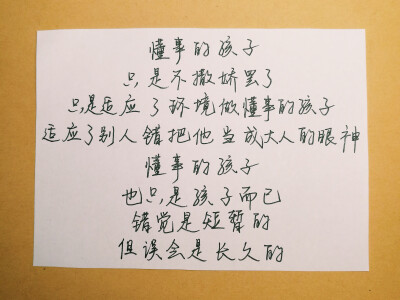 懂事的孩子
只是不撒娇罢了
只是适应了环境做懂事的孩子
适应了别人错把他当成大人的眼神
懂事的孩子
也只是孩子而已
错觉是短暂的
但误会是长久的